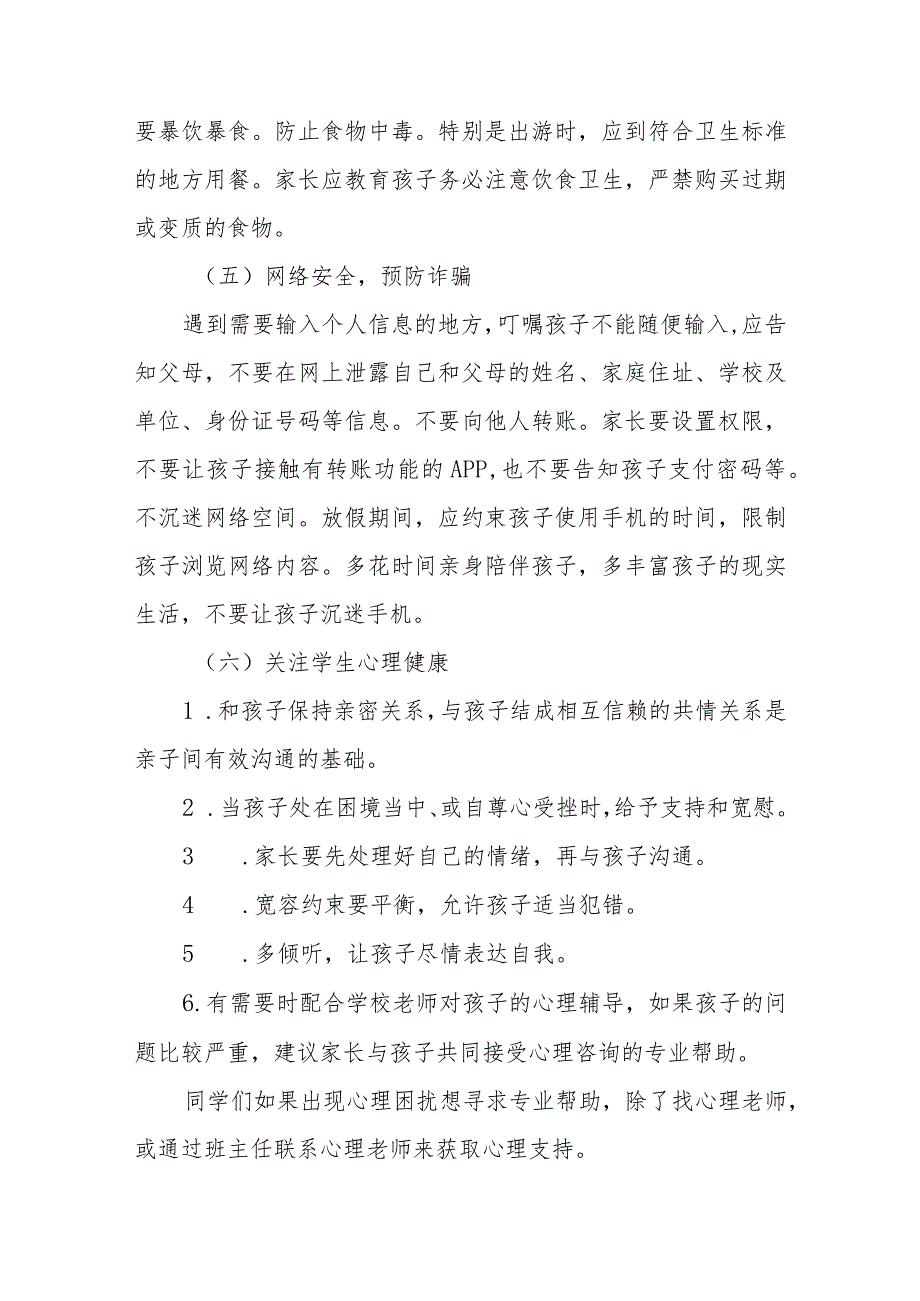 要暴饮暴食。防止食物中毒。特别是出游时，应到符合卫生标准
的地方用餐。家长应教育孩子务必注意饮食卫生，严禁购买过期
或变质的食物。
（五）网络安全，预防诈骗
遇到需要输入个人信息的地方,叮嘱孩子不能随便输入,应告
知父母，不要在网上泄露自己和父母的姓名、家庭住址、学校及
单位、身份证号码等信息。不要向他人转账。家长要设置权限，
不要让孩子接触有转账功能的APP,也不要告知孩子支付密码等。
不沉迷网络空间。放假期间，应约束孩子使用手机的时间，限制
孩子浏览网络内容。多花时间亲身陪伴孩子，多丰富孩子的现实
生活，不要让孩子沉迷手机。
（六）关注学生心理健康
1 .和孩子保持亲密关系,与孩子结成相互信赖的共情关系是
亲子间有效沟通的基础。
2 .当孩子处在困境当中、或自尊心受挫时,给予支持和宽慰。
3 .家长要先处理好自己的情绪，再与孩子沟通。
4 .宽容约束要平衡，允许孩子适当犯错。
5 .多倾听，让孩子尽情表达自我。
6.有需要时配合学校老师对孩子的心理辅导，如果孩子的问
题比较严重，建议家长与孩子共同接受心理咨询的专业帮助。
同学们如果出现心理困扰想寻求专业帮助，除了找心理老师，
或通过班主任联系心理老师来获取心理支持。